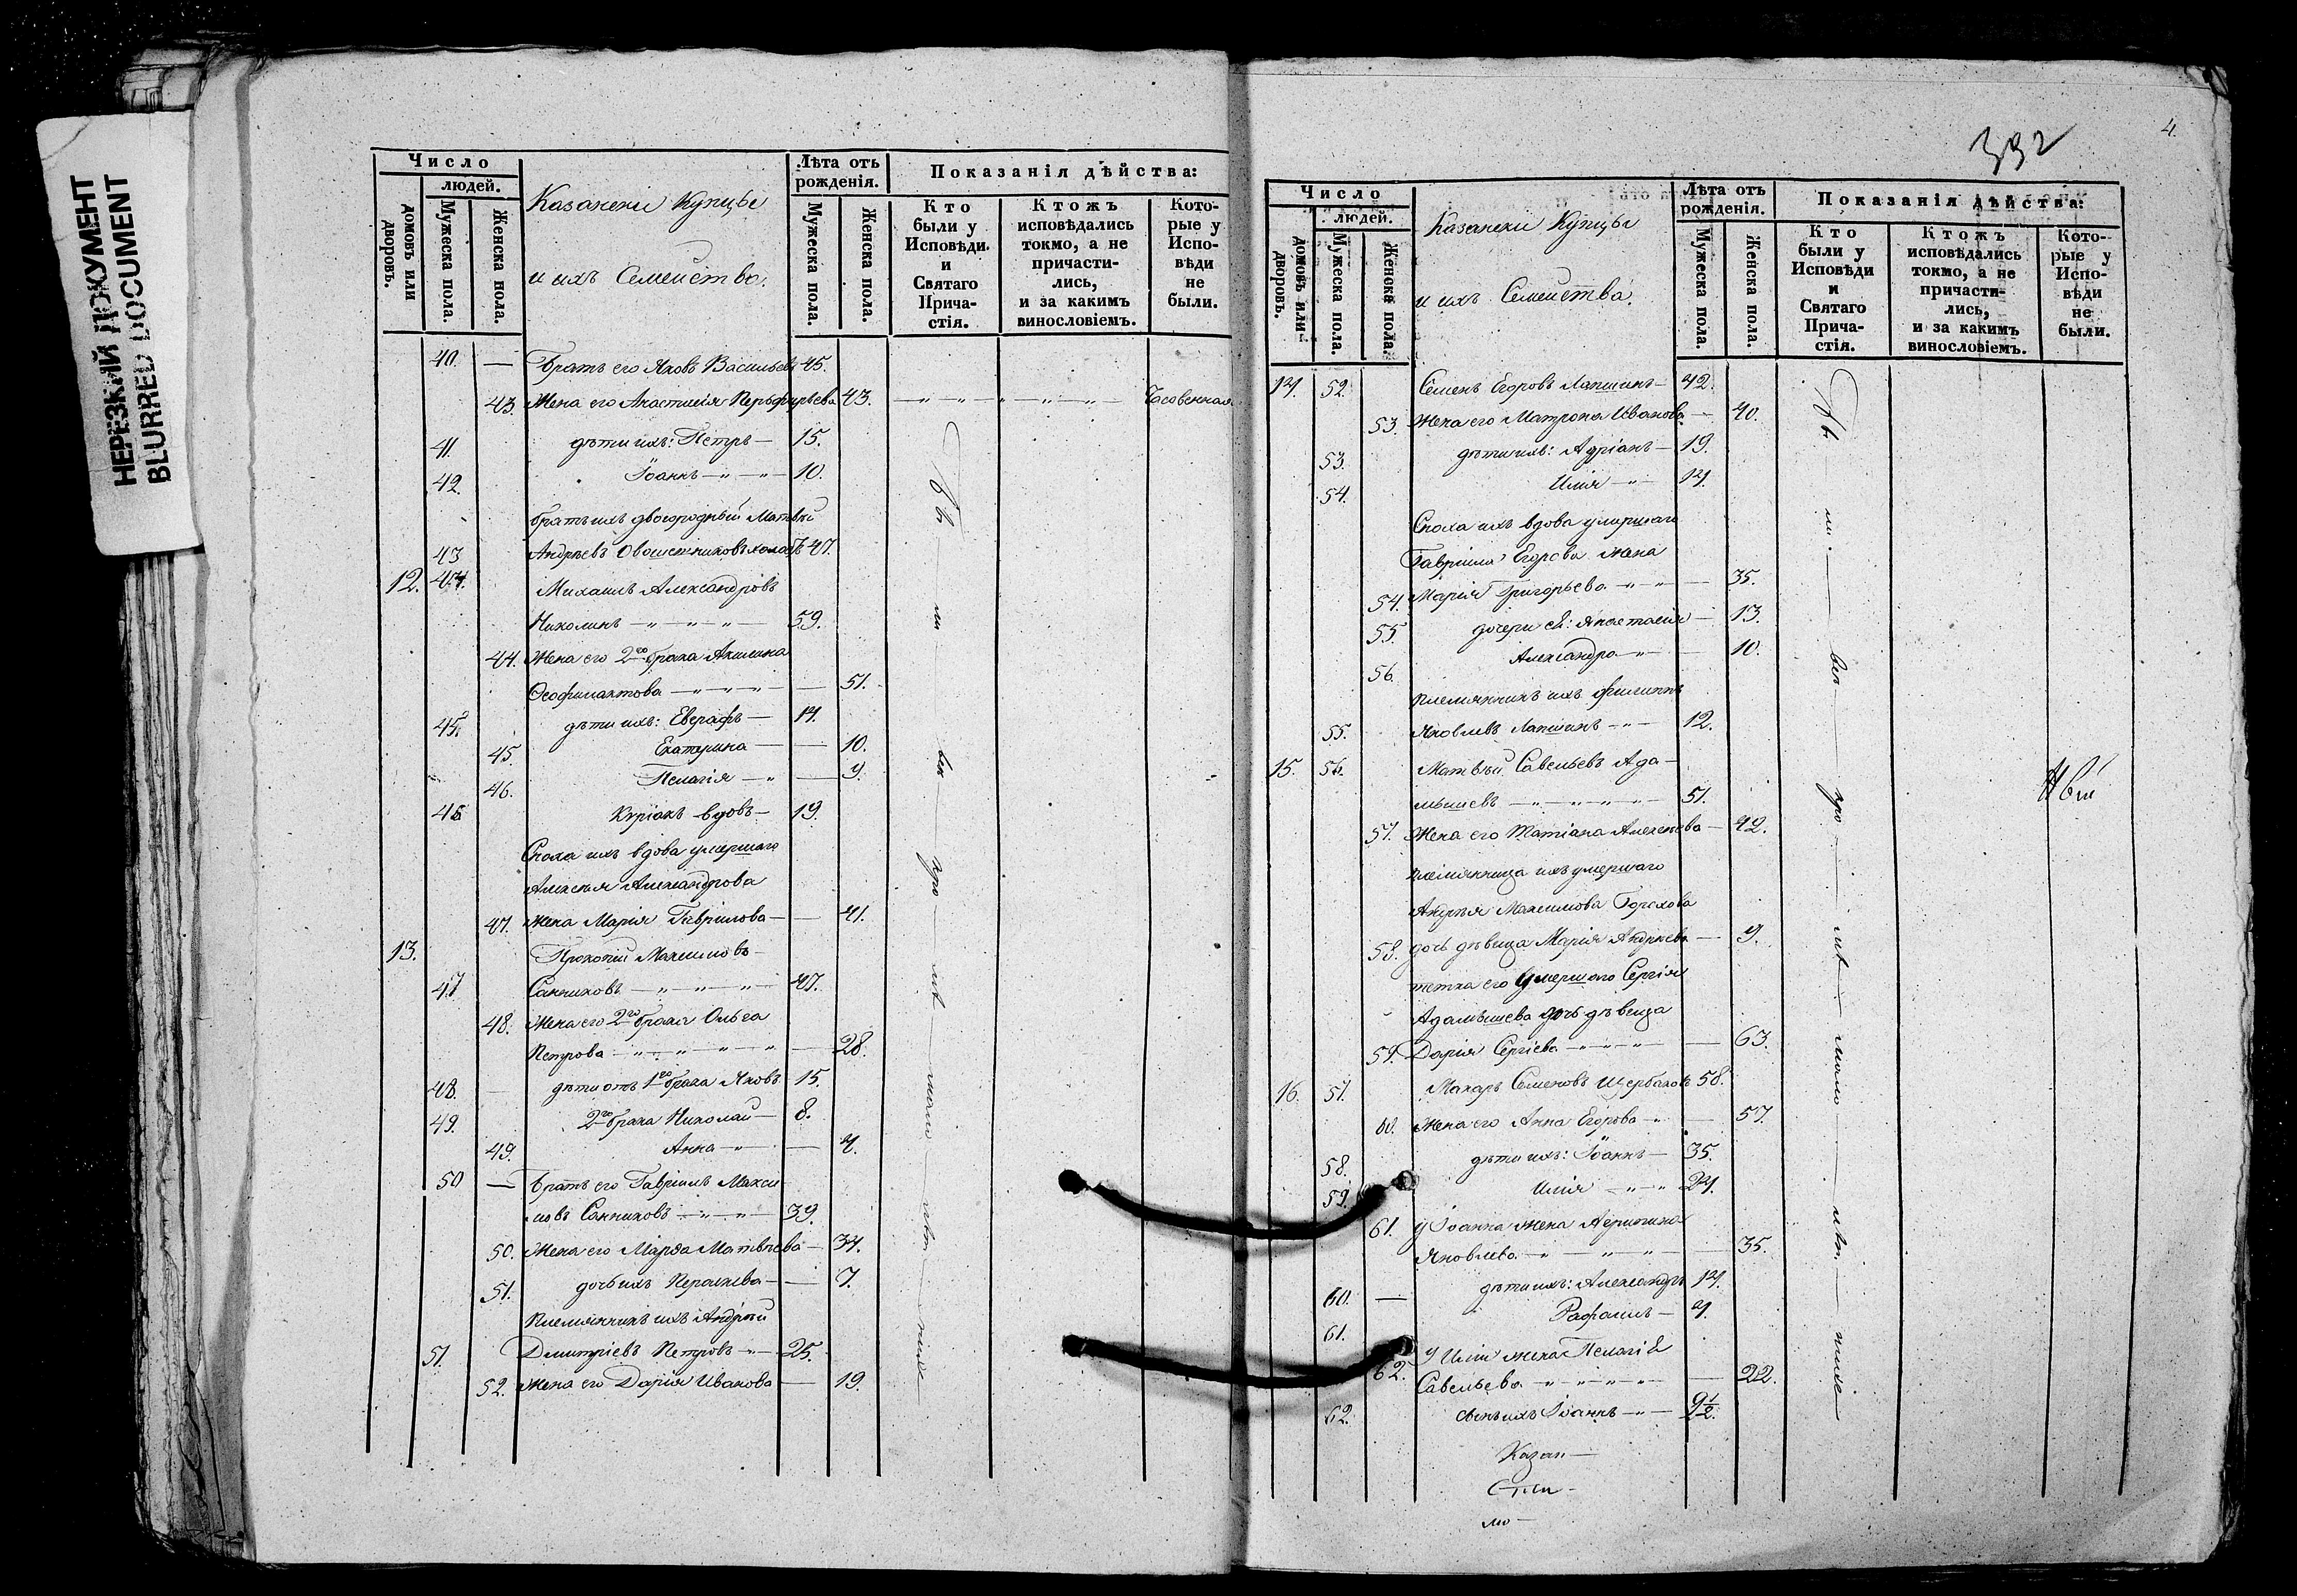 НЕРЕЗКИЙ ДОКУМЕНТ
BLURRED DOCUMENT
Число
домовъ или дворовъ.
людей.
Мужеска пола.
Женска пола.
Казански Купцы
и ихъ Семейства.
Лѣта отъ рожденія.
Мужеска пола.
Женска пола.
Показанія дѣйства:
Кто были у Исповѣди и Святаго Прича-стія.
Ктожъ исповѣдались токмо, а не причасти-лись, и за какимъ винословіемъ.
Кото-рые у Испо-вѣди не были.
40. — Братъ его Яковъ Васильевъ 45.
43. Жена его Анастасія Перфирьева 43. Часовенная
41. дѣти ихъ: Петръ — 15.
42. Іоаннъ — 10.
братъ ихъ двоюродный Матвѣй
43 Андреевъ Овошетниковъ холостъ 47.
12. 44. Михаилъ Александровъ
Николинъ — 59.
44. Жена его 2го брака Акилина
Ѳеофилактова — 51.
45. дѣти ихъ: Евграфъ — 14.
45. Екатерина — 10.
46. Пелагія — 9.
46 Куріакъ вдовъ — 19.
Сноха ихъ вдова умершаго
Алексѣя Александрова
47. Жена Марія Гаврилова — 41.
13. Прокопій Максимовъ
47 Санниковъ — 47.
48. Жена его 2го брака Ольга
Петрова — 28.
48. — дѣти отъ 1го брака Яковъ 15.
49. 2го брака Николай — 8.
49. Анна — 4.
50 — Братъ его Гавріилъ Макси
мовъ Санниковъ — 39.
50. Жена его Марѳа Матвѣева — 34.
51. дочь ихъ Параскева — 7.
Племянникъ ихъ Андрей
51. Дмитріевъ Петровъ — 25.
52. Жена его Дарія Иванова — 19.
392
4.
Число
домовъ или дворовъ.
людей.
Мужеска пола.
Женска пола.
Казански Купцы
и ихъ Семейства.
Лѣта отъ рожденія.
Мужеска пола.
Женска пола.
Показанія дѣйства:
Кто были у Исповѣди и Святаго Прича-стія.
Ктожъ исповѣдались токмо, а не причасти-лись, и за какимъ винословіемъ.
Кото-рые у Испо-вѣди не были.
14. 52. Семенъ Егоровъ Лапшинъ — 42.
53. Жена его Матрона Иванова — 40.
53. дѣти ихъ: Адріанъ — 19.
54. Илія — 14.
Сноха ихъ вдова умершаго
Гавріила Егорова жена
54. Марія Григорьева — 35.
55. дочери ея: Анастасія — 13.
56. Александра — 10.
племянникъ ихъ Филиппъ
55. Яковлевъ Лапшинъ — 12.
15. 56. Матвѣй Савельевъ Ада-
мышевъ — 51.
57. Жена его Татіана Алексеева — 42.
племянница ихъ умершаго
Андрея Максимова Горохова
58. дочь дѣвица Марія Андреева — 9.
тетка его умершаго Сергія
Адамышева дочь дѣвица
59. Дарія Сергіева — 63.
16. 57. Макаръ Семеновъ Щербаковъ 58.
60. Жена его Анна Егорова — 57.
58. дѣти ихъ: Іоаннъ — 35.
59. Илія — 24.
61. У Іоанна жена Агрипина
Яковлева — 35.
60. — дѣти ихъ: Александръ 14.
61. Рафаилъ — 4.
62. У Иліи жена Пелагія
Савельева — 22.
62. сынъ ихъ Іоаннъ —
Казан —